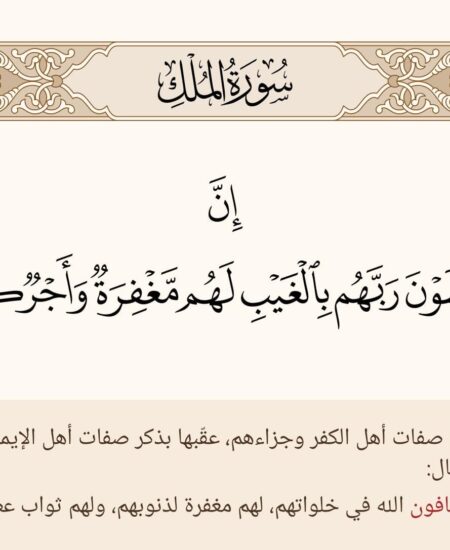 سُورَةُ المُلْكِ
إِنَّ
رَبَّهُم بِٱلْغَيْبِ لَهُم مَّغْفِرَةٌ وَأَجْرٌ
صفات أهل الكفر وجزاءهم، عقّبها بذكر صفات أهل
الله في خلواتهم، لهم مغفرة لذنوبهم، ولهم ثواب